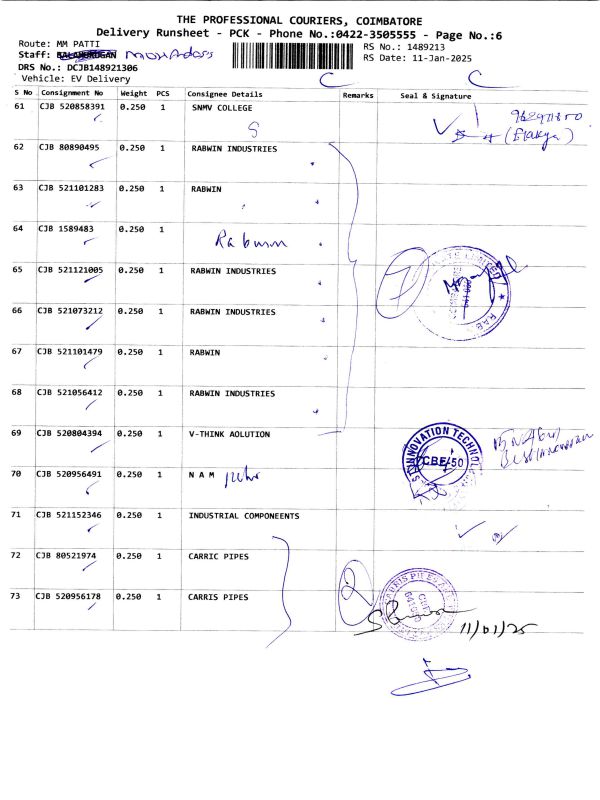 THE PROFESSIONAL COURIERS, COIMBATORE
Delivery Runsheet - PCK - Phone No.:0422-3505555 - Page No.:6
Route: MM PATTI
RS No.: 1489213
Staff:
RS Date: 11-Jan-2025
DRS No.: DCJB148921306
Vehicle: EV Delivery
C C
S No Consignment No Weight PCS Consignee Details Remarks Seal & Signature
61 CJB 520858391 0.250 1 SNMV COLLEGE
S
62 CJB 80890495 0.250 1 RABWIN INDUSTRIES
63 CJB 521101283 0.250 1 RABWIN
64 CJB 1589483 0.250 1
Rabwin
65 CJB 521121005 0.250 1 RABWIN INDUSTRIES
7
66 CJB 521073212 0.250 1 RABWIN INDUSTRIES
67 CJB 521101479 0.250 1 RABWIN
68 CJB 521056412 0.250 1 RABWIN INDUSTRIES
69 CJB 520804394 0.250 1 V-THINK AOLUTION
INNOVATION TECHNOL
CBE-50
70 CJB 520956491 0.250 1 N A M
71 CJB 521152346 0.250 1 INDUSTRIAL COMPONEENTS
72 CJB 80521974 0.250 1 CARRIC PIPES
2
73 CJB 520956178 0.250 1 CARRIS PIPES
11/01/25